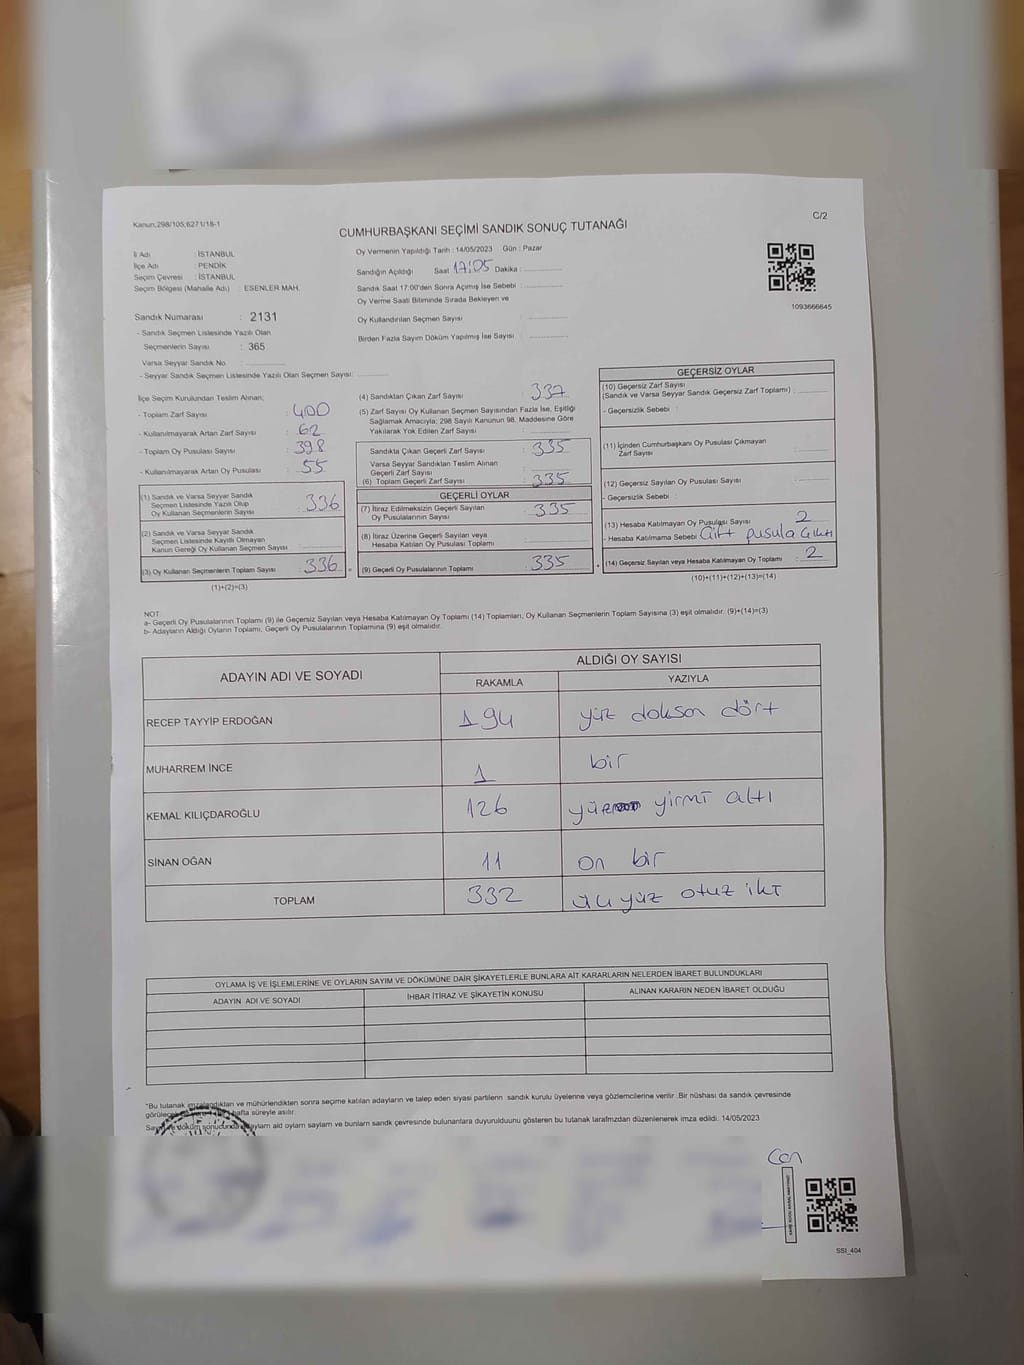 Kanun;298/105;6271/18-1
C/2
CUMHURBAŞKANI SEÇİMİ SANDIK SONUÇ TUTANAĞI
İl Adı : İSTANBUL
İlçe Adı : PENDİK
Seçim Çevresi : İSTANBUL
Seçim Bölgesi (Mahalle Adı) : ESENLER MAH.
Sandık Numarası : 2131
- Sandık Seçmen Listesinde Yazılı Olan
Seçmenlerin Sayısı : 365
Varsa Seyyar Sandık No :
- Seyyar Sandık Seçmen Listesinde Yazılı Olan Seçmen Sayısı:
Oy Vermenin Yapıldığı Tarih : 14/05/2023 Gün : Pazar
Sandığın Açıldığı Saat 17:05 Dakika :
Sandık Saat 17:00'den Sonra Açılmış İse Sebebi :
Oy Verme Saati Bitiminde Sırada Bekleyen ve
Oy Kullandırılan Seçmen Sayısı :
Birden Fazla Sayım Döküm Yapılmış İse Sayısı :
1093666645
İlçe Seçim Kurulundan Teslim Alınan;
- Toplam Zarf Sayısı : 400
- Kullanılmayarak Artan Zarf Sayısı : 62
- Toplam Oy Pusulası Sayısı : 398
- Kullanılmayarak Artan Oy Pusulası : 55
(1) Sandık ve Varsa Seyyar Sandık
Seçmen Listesinde Yazılı Olup
Oy Kullanan Seçmenlerin Sayısı : 336
(2) Sandık ve Varsa Seyyar Sandık
Seçmen Listesinde Kayıtlı Olmayan
Kanun Gereği Oy Kullanan Seçmen Sayısı :
(3) Oy Kullanan Seçmenlerin Toplam Sayısı : 336 =
(1)+(2)=(3)
(4) Sandıktan Çıkan Zarf Sayısı : 337
(5) Zarf Sayısı Oy Kullanan Seçmen Sayısından Fazla İse, Eşitliği
Sağlamak Amacıyla; 298 Sayılı Kanunun 98. Maddesine Göre
Yakılarak Yok Edilen Zarf Sayısı :
Sandıkta Çıkan Geçerli Zarf Sayısı : 335
Varsa Seyyar Sandıktan Teslim Alınan
Geçerli Zarf Sayısı :
(6) Toplam Geçerli Zarf Sayısı : 335
GEÇERLİ OYLAR
(7) İtiraz Edilmeksizin Geçerli Sayılan
Oy Pusulalarının Sayısı : 335
(8) İtiraz Üzerine Geçerli Sayılan veya
Hesaba Katılan Oy Pusulası Toplamı :
(9) Geçerli Oy Pusulalarının Toplamı : 335 +
GEÇERSİZ OYLAR
(10) Geçersiz Zarf Sayısı
(Sandık ve Varsa Seyyar Sandık Geçersiz Zarf Toplamı) :
- Geçersizlik Sebebi :
(11) İçinden Cumhurbaşkanı Oy Pusulası Çıkmayan
Zarf Sayısı :
(12) Geçersiz Sayılan Oy Pusulası Sayısı :
- Geçersizlik Sebebi :
(13) Hesaba Katılmayan Oy Pusulası Sayısı : 2
- Hesaba Katılmama Sebebi : Çift pusula çıktı
(14) Geçersiz Sayılan veya Hesaba Katılmayan Oy Toplamı : 2
(10)+(11)+(12)+(13)=(14)
NOT:
a- Geçerli Oy Pusulalarının Toplamı (9) ile Geçersiz Sayılan veya Hesaba Katılmayan Oy Toplamı (14) Toplamları, Oy Kullanan Seçmenlerin Toplam Sayısına (3) eşit olmalıdır. (9)+(14)=(3)
b- Adayların Aldığı Oyların Toplamı, Geçerli Oy Pusulalarının Toplamına (9) eşit olmalıdır.
ADAYIN ADI VE SOYADI
ALDIĞI OY SAYISI
RAKAMLA YAZIYLA
RECEP TAYYİP ERDOĞAN 194 yüz doksan dört
MUHARREM İNCE 1 bir
KEMAL KILIÇDAROĞLU 126 yüz yirmi altı
SİNAN OĞAN 11 on bir
TOPLAM 332 üçyüz otuz iki
OYLAMA İŞ VE İŞLEMLERİNE VE OYLARIN SAYIM VE DÖKÜMÜNE DAİR ŞİKAYETLERLE BUNLARA AİT KARARLARIN NELERDEN İBARET BULUNDUKLARI
ADAYIN ADI VE SOYADI İHBAR İTİRAZ VE ŞİKAYETİN KONUSU ALINAN KARARIN NEDEN İBARET OLDUĞU
*Bu tutanak imzalandıktan ve mühürlendikten sonra seçime katılan adayların ve talep eden siyasi partilerin sandık kurulu üyelerine veya gözlemcilerine verilir. Bir nüshası da sandık çevresinde
hafta süreyle asılır.
ald oylarn saylarn ve bunlarn sandk çevresinde bulunanlara duyurulduunu gösteren bu tutanak tarafmzdan düzenlenerek imza edildi. 14/05/2023
SSİ_404